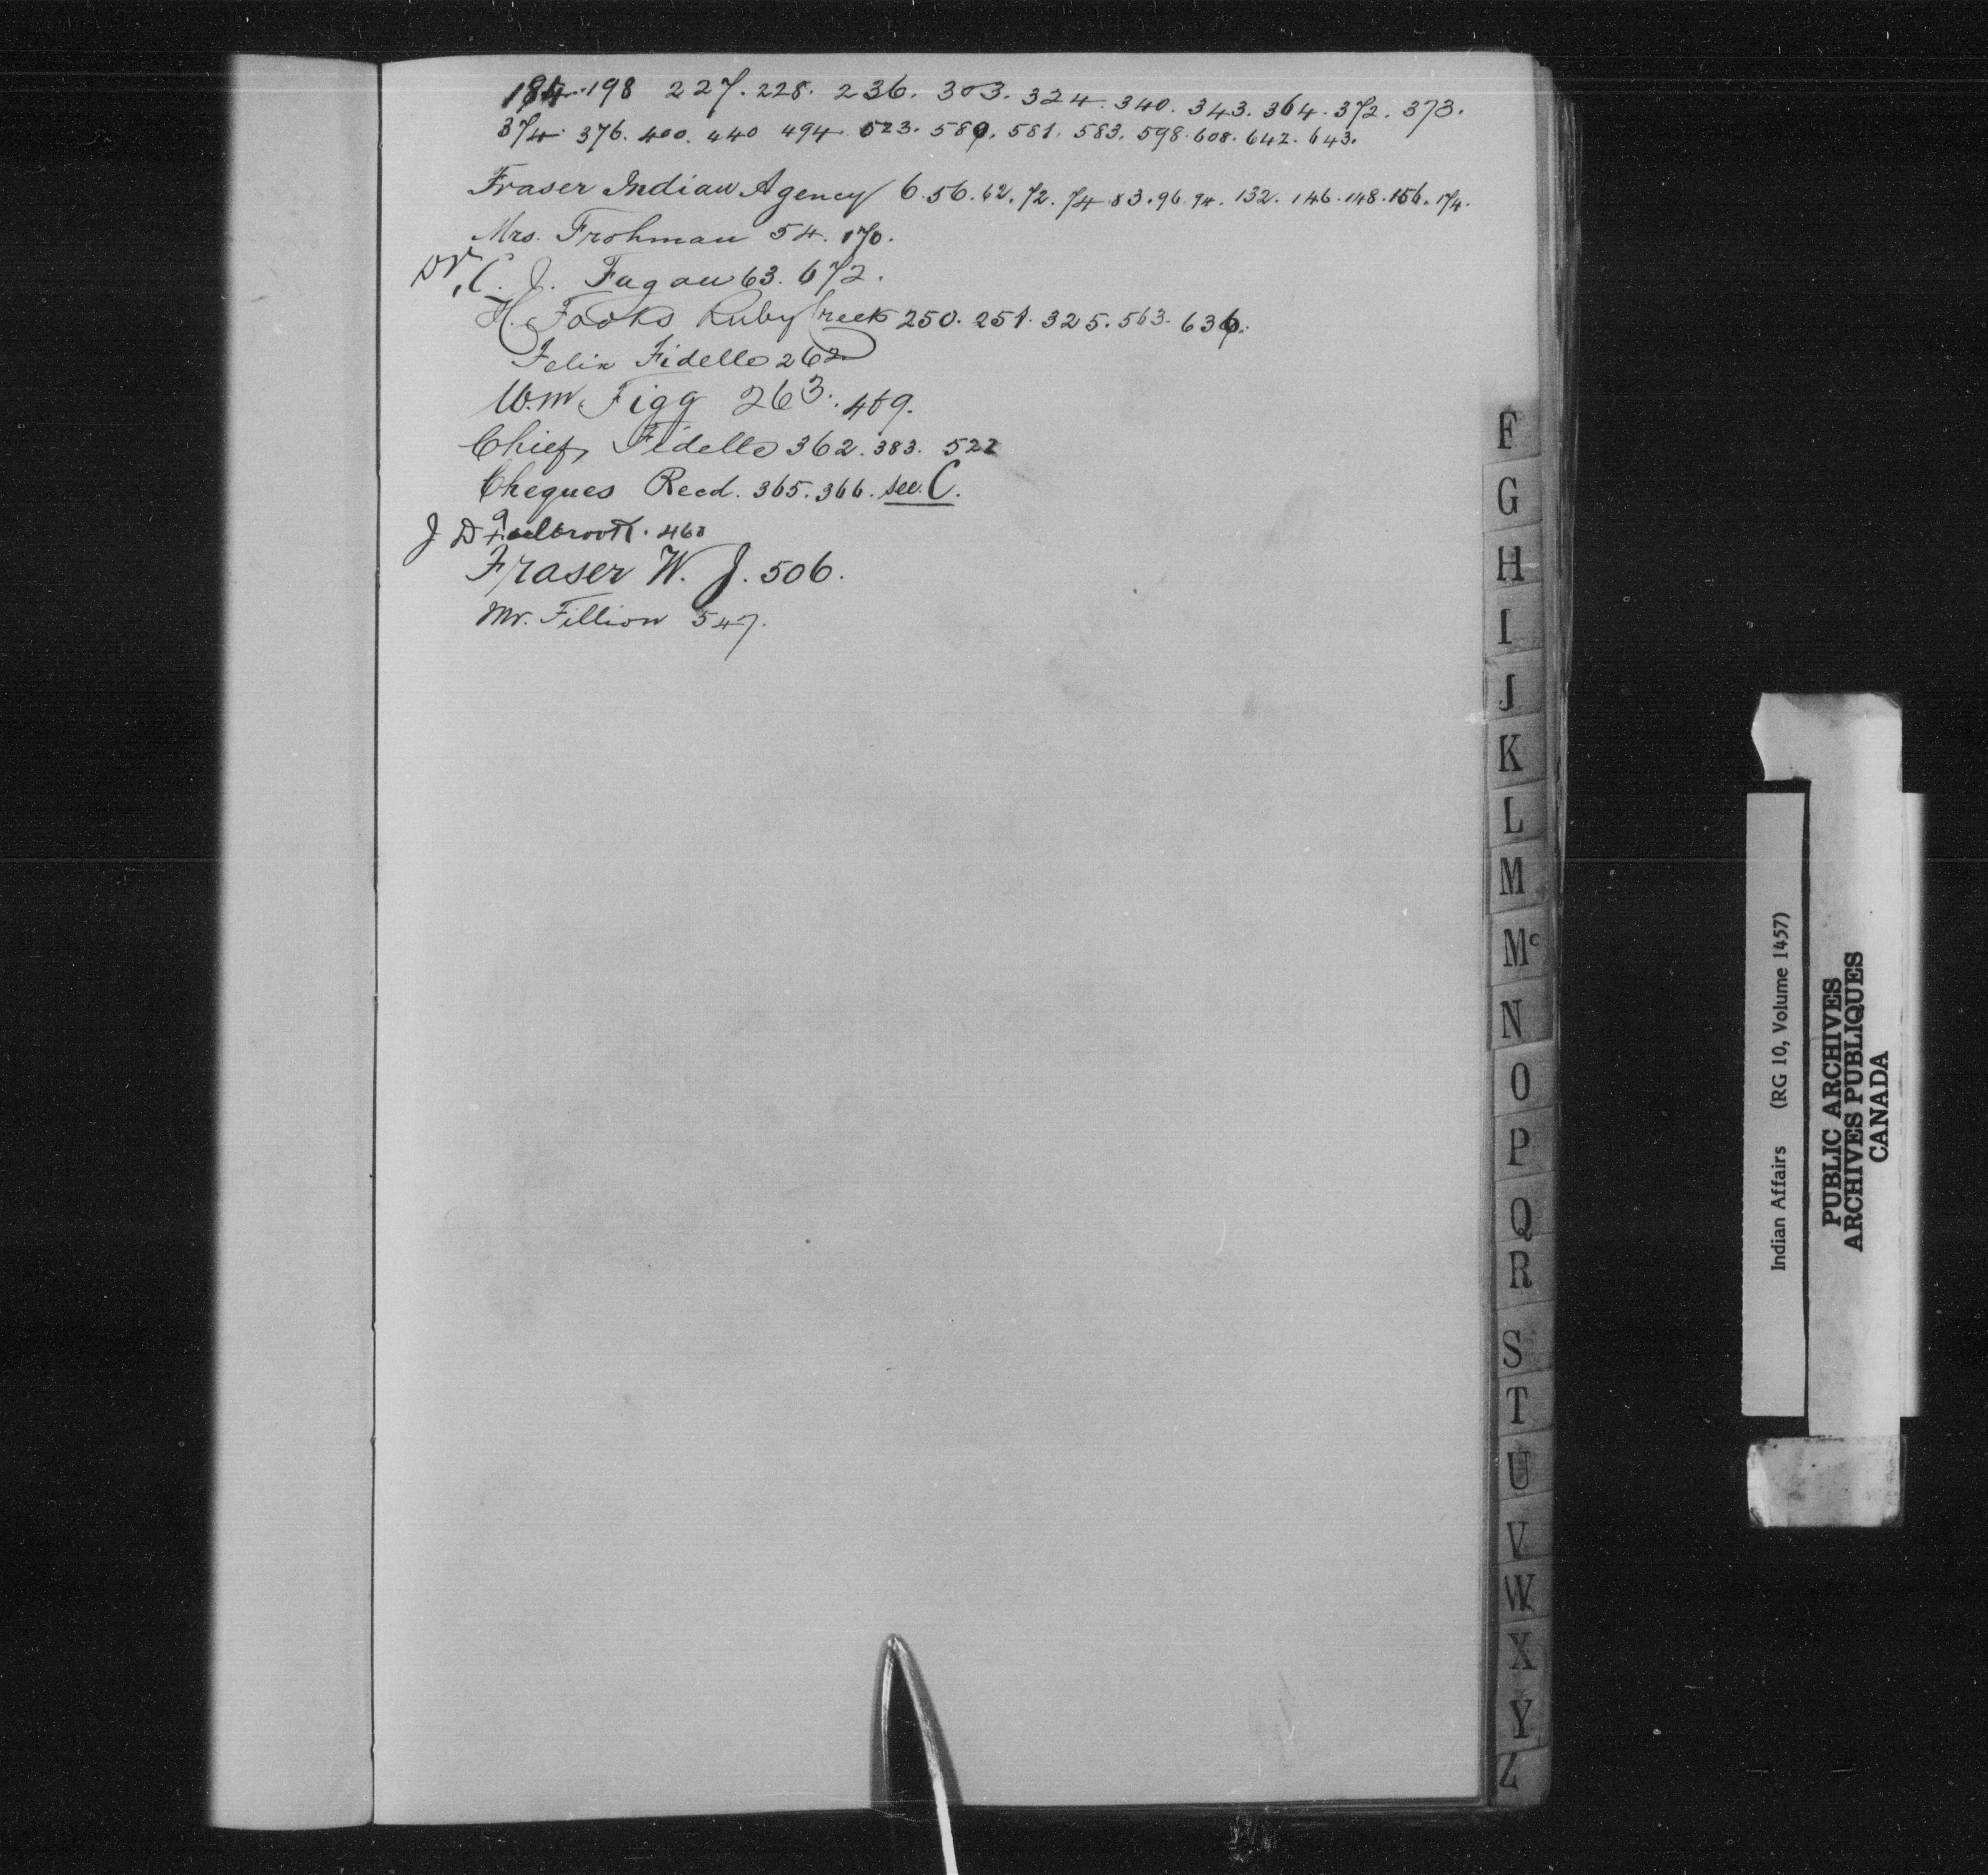 184. 198 227. 228. 236. 303. 324. 340. 343. 364. 372. 373.
374. 376. 400. 440 494. 523. 580. 581. 583. 598. 608. 642. 643.
Fraser Indian Agency 6. 56. 62. 72. 74. 83. 96. 94. 132. 146. 148. 156. 174.
Mrs. Frohman 54. 170.
Dr. C. J. Fagan 63. 672.
H. Fooks Ruby Creek 250. 251. 325. 563. 636.
Felix Fidelle 262
Wm. Figg 263. 409.
Chief Fidelle 362. 383. 522
Cheques Recd. 365. 366. see. C.
J D 460
Fraser W. J. 506.
Mr. Fillion 547.
F
G
H
I
J
K
L
M
Mc
N
O
P
Q
R
S
T
U
V
W
X
Y
Z
Indian Affairs (RG 10, Volume 1457)
PUBLIC ARCHIVES
ARCHIVES PUBLIQUES
CANADA